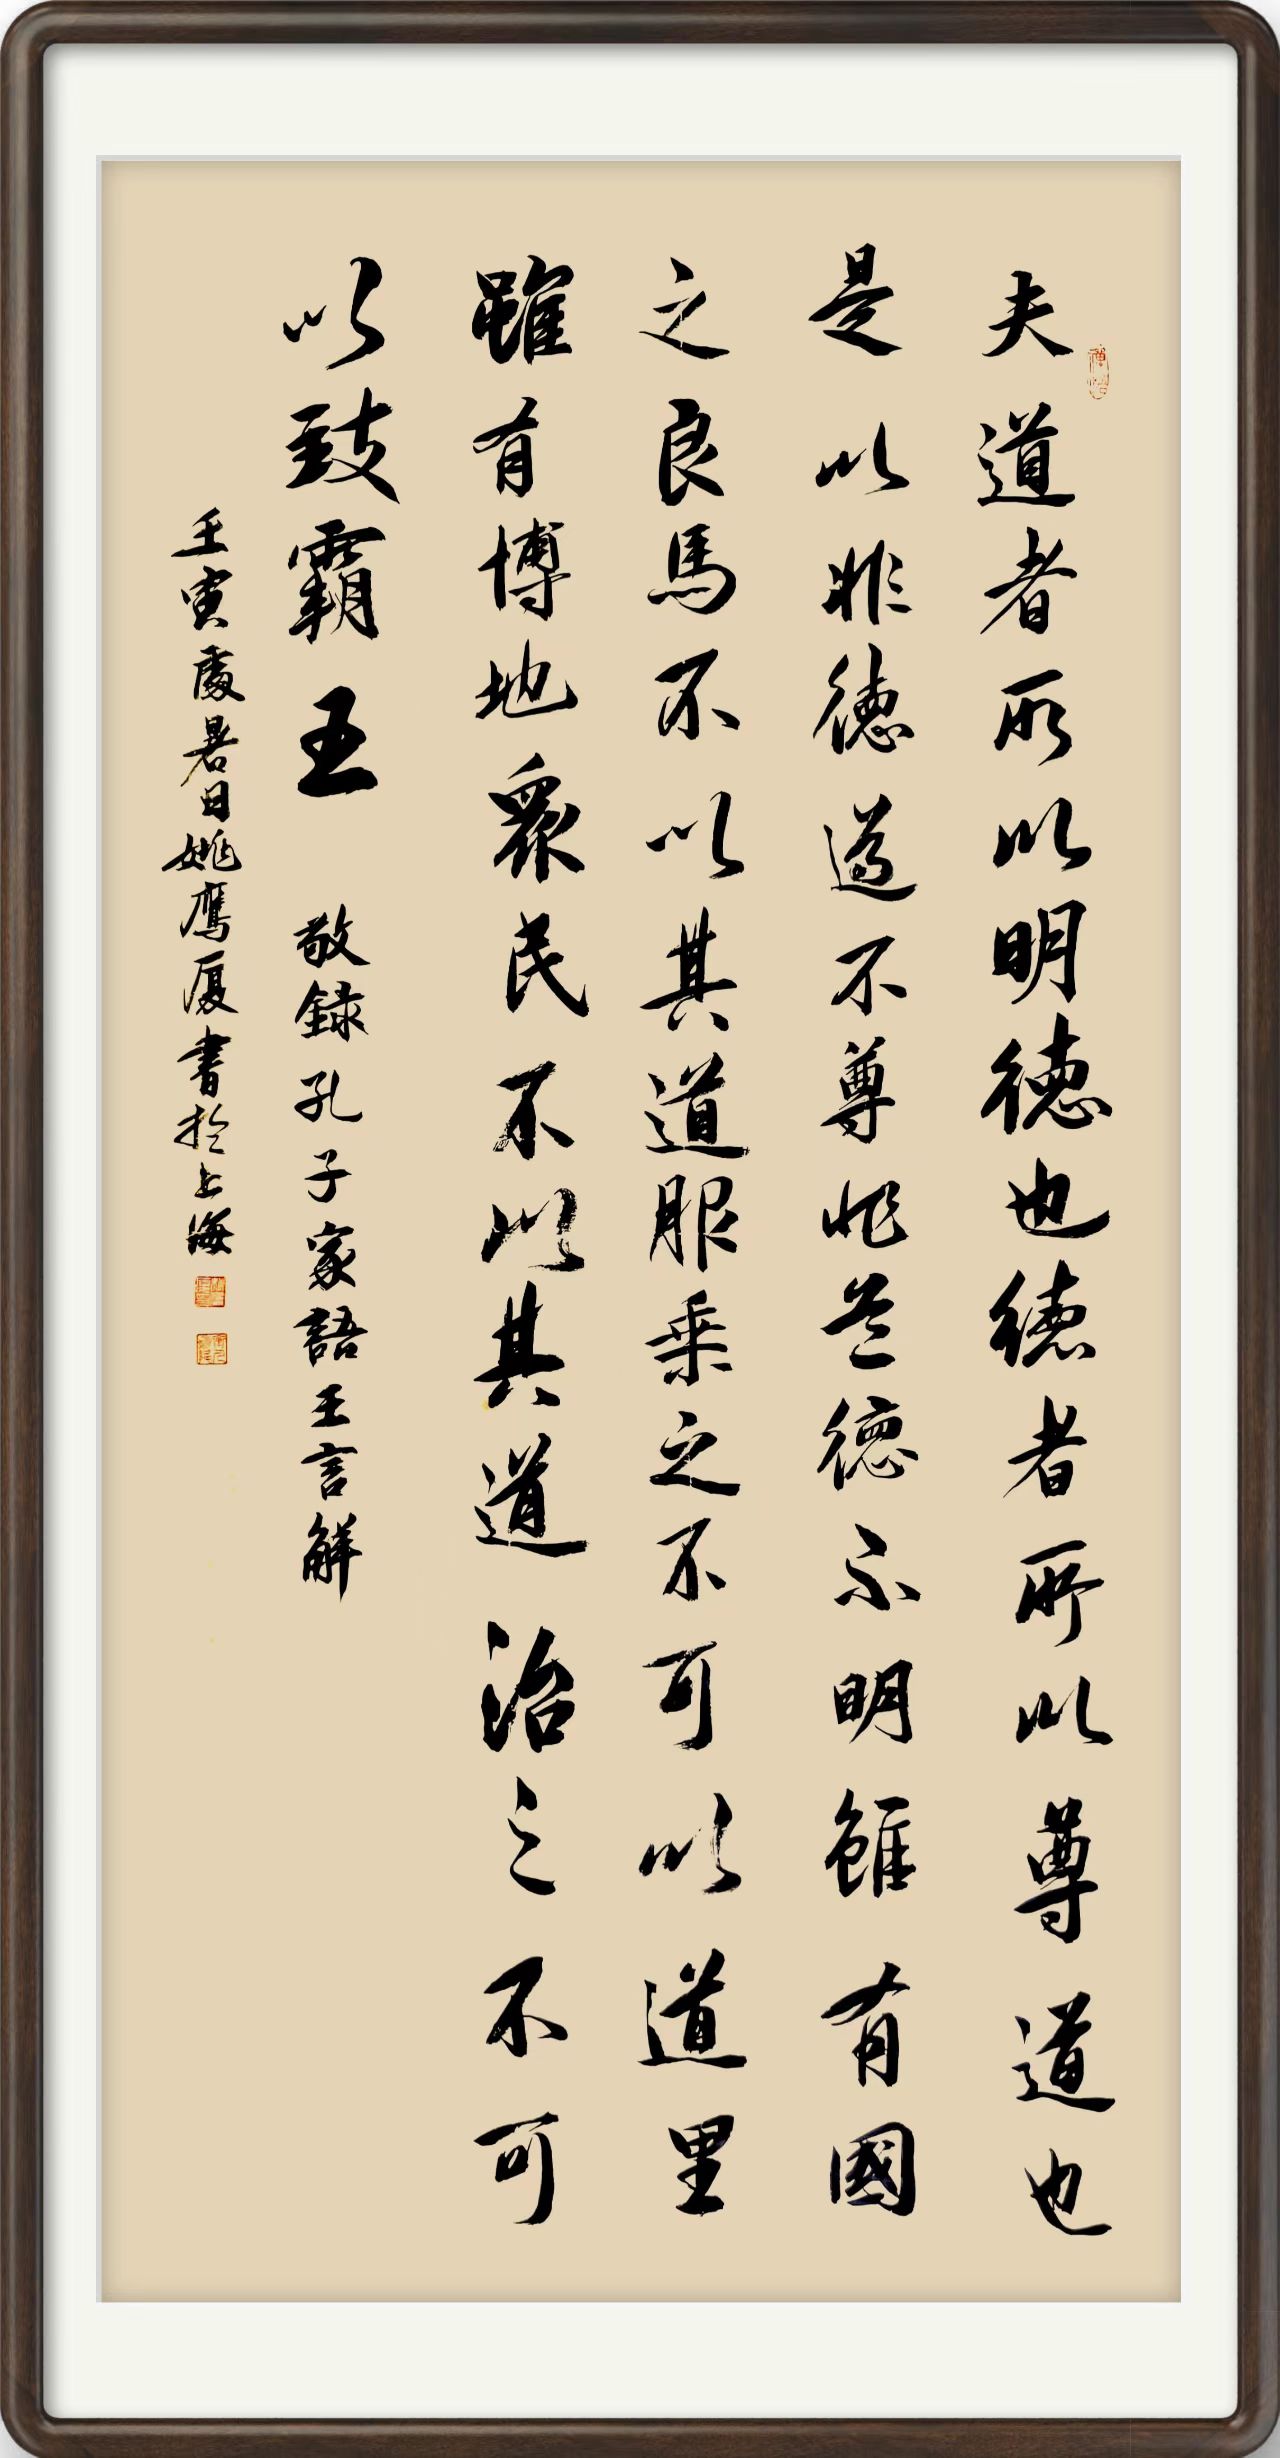 夫道者所以明德也德者所以尊道也
是以非德道不尊非道德不明雖有國
之良馬不以其道服乘之不可以道里
雖有博地衆民不以其道治之不可
以致霸王
敬録孔子家語王言解
壬寅處暑日姚鷹厦書於上海